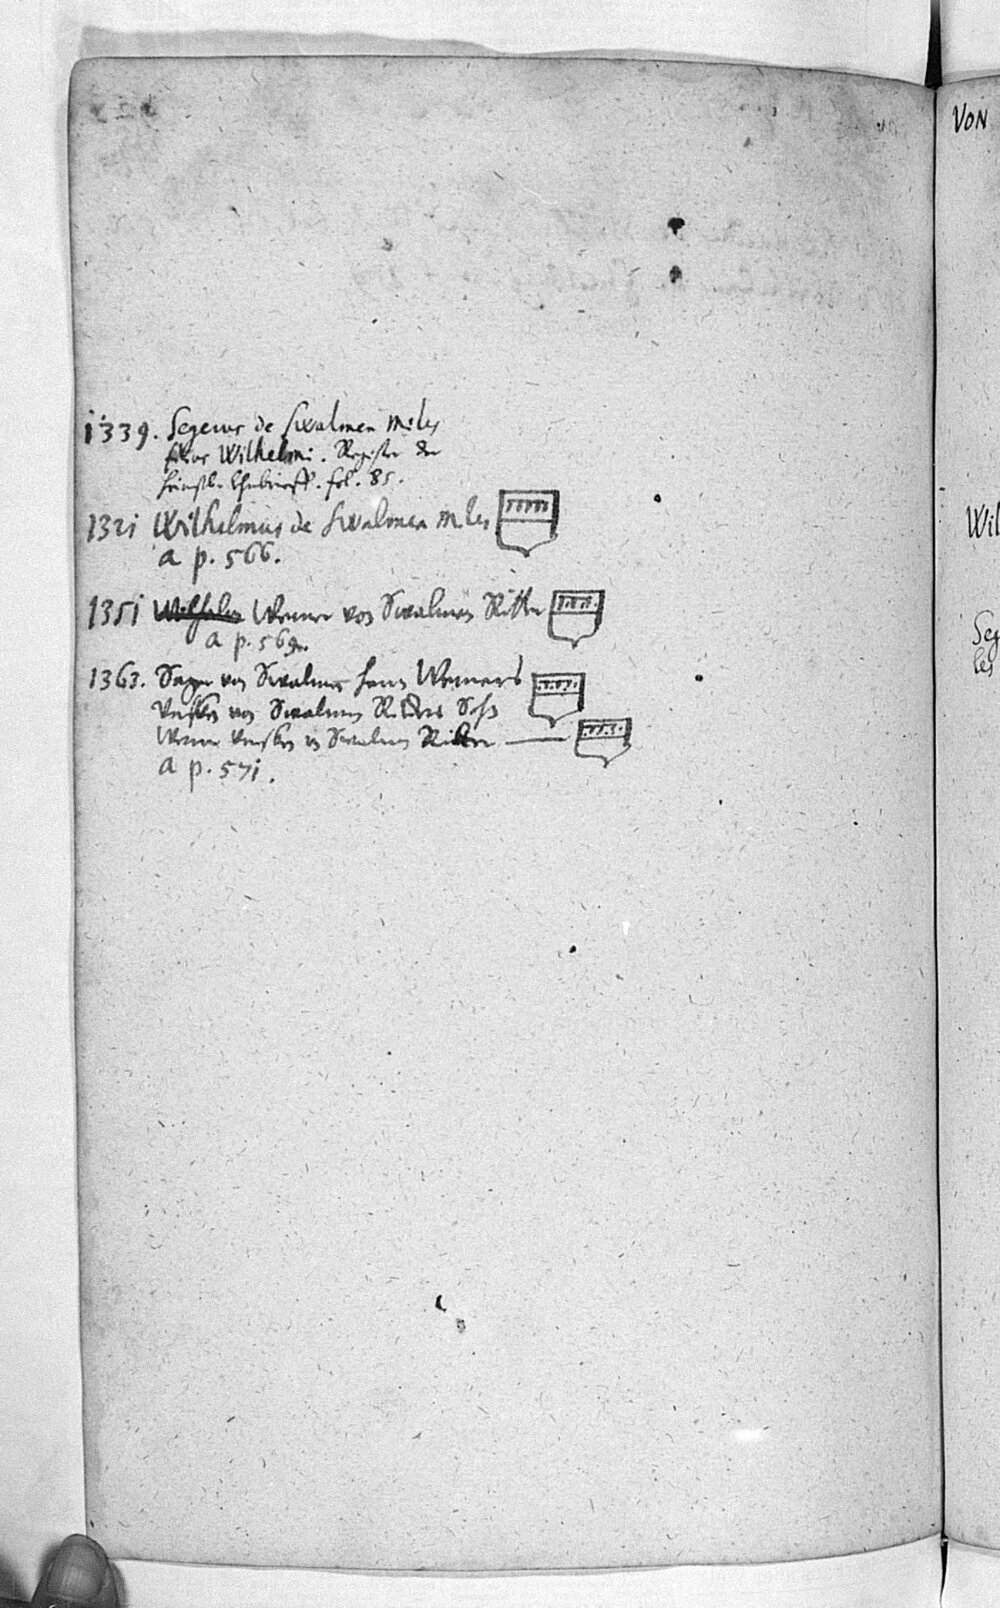 1339. Segerus de Swalmen Miles
filius Wilhelmi. Register der
Heinsb. Lehnbrieff. fol. 85.
1321 Wilhelmus de Swalmen Miles
a p. 566.
1351 Wilhelm Werner von Swalmen Ritter
a p. 569.
1363. Seger von Swalmen Herrn Werners
von Swalmen Ritters Sohn
Werner von Swalmen Ritter
a p. 571.
VON
Wil
Seg
les